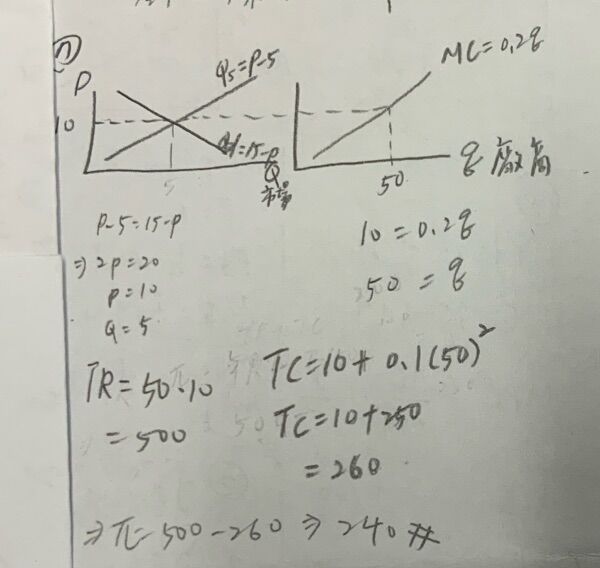 (1)
P
Qs=P-5
MC=0.2q
10
Qd=15-P
5
Q
市場
50
q 廠商
P-5=15-P
⇒2P=20
P=10
Q=5
10=0.2q
50=q
TR=50·10
=500
TC=10+0.1(50)²
TC=10+250
=260
⇒π=500-260⇒240#